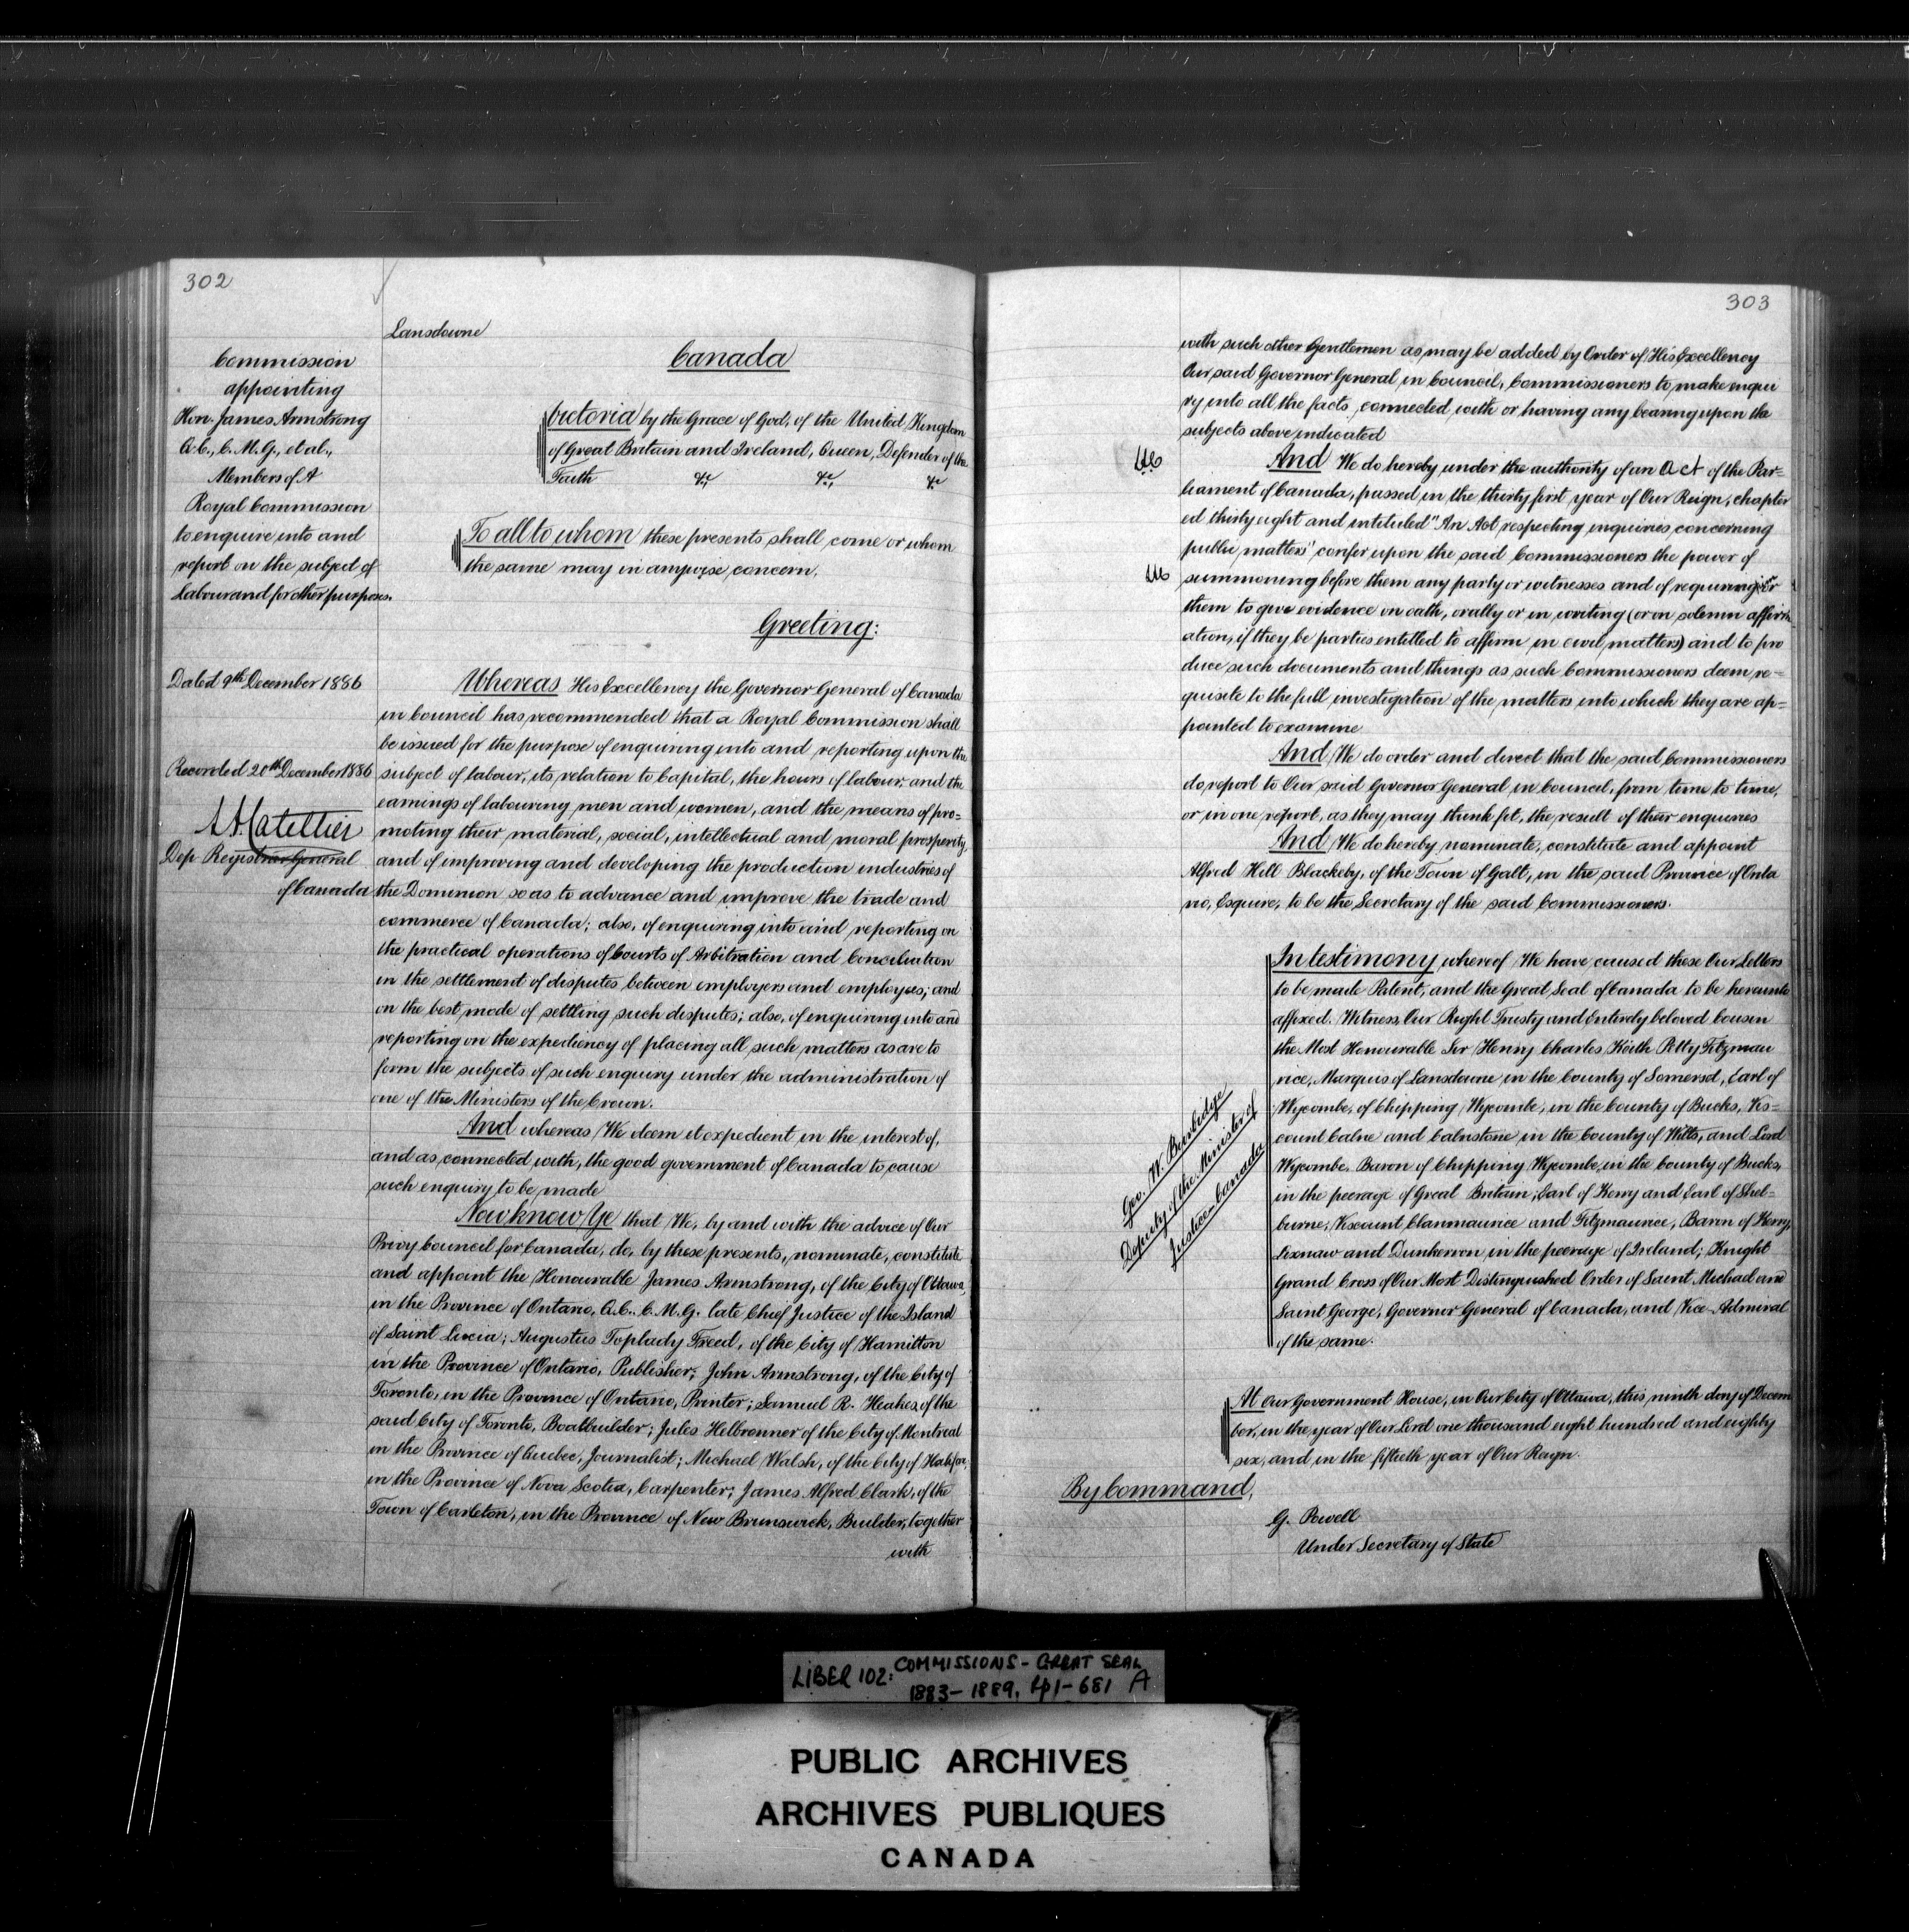 302
Lansdowne
Commission
appointing
Hon. James Armstrong
Q.C., C.M.G., et al.,
Members of A
Royal Commission
to enquire into and
report on the subject of
Labour and for other purposes.
Dated 9th December 1886
Recorded 20th December 1886
Dep Registrar General
of Canada
Canada
Victoria by the Grace of God, of the United Kingdom
of Great Britain and Ireland, Queen, Defender of the
Faith &c, &c, &c
To all to whom these presents shall come or whom
the same may in anywise concern,
Greeting:
Whereas His Excellency the Governor General of Canada
in Council has recommended that a Royal Commission shall
be issued for the purpose of enquiring into and reporting upon the
subject of labour, its relation to Capital, the hours of labour, and the
earnings of labouring men and women, and the means of pro=
moting their material, social, intellectual and moral prosperity,
and of improving and developing the production industries of
the Dominion so as to advance and improve the trade and
commerce of Canada; also, of enquiring into and reporting on
the practical operations of Courts of Arbitration and Conciliation
in the settlement of disputes between employers and employees; and
on the best mode of settling such disputes; also, of enquiring into and
reporting on the expediency of placing all such matters as are to
form the subjects of such enquiry under the administration of
one of the Ministers of the Crown.
And whereas We deem it expedient in the interest of,
and as connected with, the good government of Canada to cause
such enquiry to be made
Now know Ye that We, by and with the advice of Our
Privy Council for Canada, do, by these presents, nominate, constitute
and appoint the Honourable James Armstrong, of the City of Ottawa,
in the Province of Ontario, Q.C., C.M.G. late Chief Justice of the Island
of Saint Lucia; Augustus Toplady Freed, of the City of Hamilton
in the Province of Ontario, Publisher; John Armstrong, of the City of
Toronto, in the Province of Ontario, Printer; Samuel R. Heakes, of the
said City of Toronto, Boatbuilder; Jules Helbronner of the City of Montreal
in the Province of Quebec, Journalist; Michael Walsh, of the City of Halifax,
in the Province of Nova Scotia, Carpenter; James Alfred Clark, of the
Town of Carleton, in the Province of New Brunswick, Builder, together
with
303
with such other Gentlemen as may be added by Order of His Excellency
Our said Governor General in Council, Commissioners to make enqui
ry into all the facts connected with or having any bearing upon the
subjects above indicated
And We do hereby under the authority of an Act of the Par=
liament of Canada, passed in the thirty first year of Our Reign, chapter
ed thirty eight and intituled "An Act respecting enquiries concerning
public matters" confer upon the said Commissioners the power of
summoning before them any party or witnesses and of requiring
them to give evidence on oath, orally or in writing (or on solemn affirm
ation, if they be parties entitled to affirm in civil matters) and to pro
duce such documents and things as such Commissioners deem re=
quisite to the full investigation of the matters into which they are ap=
pointed to examine
And We do order and direct that the said Commissioners
do report to Our said Governor General in Council, from time to time,
or in one report, as they may think fit, the result of their enquiries
And We do hereby nominate, constitute and appoint
Alfred Hill Blackeby, of the Town of Galt, in the said Province of Onta
rio, Esquire, to be the Secretary of the said Commissioners.
In testimony whereof We have caused these Our Letters
to be made Patent, and the Great Seal of Canada to be hereunto
affixed. Witness, Our Right Trusty and Entirely beloved Cousin
the Most Honourable Sir Henry Charles Keith Petty Fitzmau
rice, Marquis of Lansdowne in the County of Somerset, Earl of
Wycombe, of Chipping Wycombe, in the County of Bucks, Vis=
count Calne and Calnstone in the County of Wilts, and Lord
Wycombe, Baron of Chipping Wycombe, in the County of Bucks,
in the peerage of Great Britain; Earl of Kerry and Earl of Shel=
burne, Viscount Clanmaurice and Fitzmaurice, Baron of Kerry,
Lixnaw and Dunkerron in the peerage of Ireland; Knight
Grand Cross of Our Most Distinguished Order of Saint Michael and
Saint George; Governor General of Canada, and Vice-Admiral
of the same.
Geo. W. Burbidge
Deputy of the Minister of
Justice Canada
At Our Government House, in Our City of Ottawa, this ninth day of Decem
ber, in the year of Our Lord one thousand eight hundred and eighty
six, and in the fiftieth year of Our Reign.
By Command,
G. Powell
Under Secretary of State
LIBER 102: COMMISSIONS - GREAT SEAL
1883-1889, pp1-681 A
PUBLIC ARCHIVES
ARCHIVES PUBLIQUES
CANADA